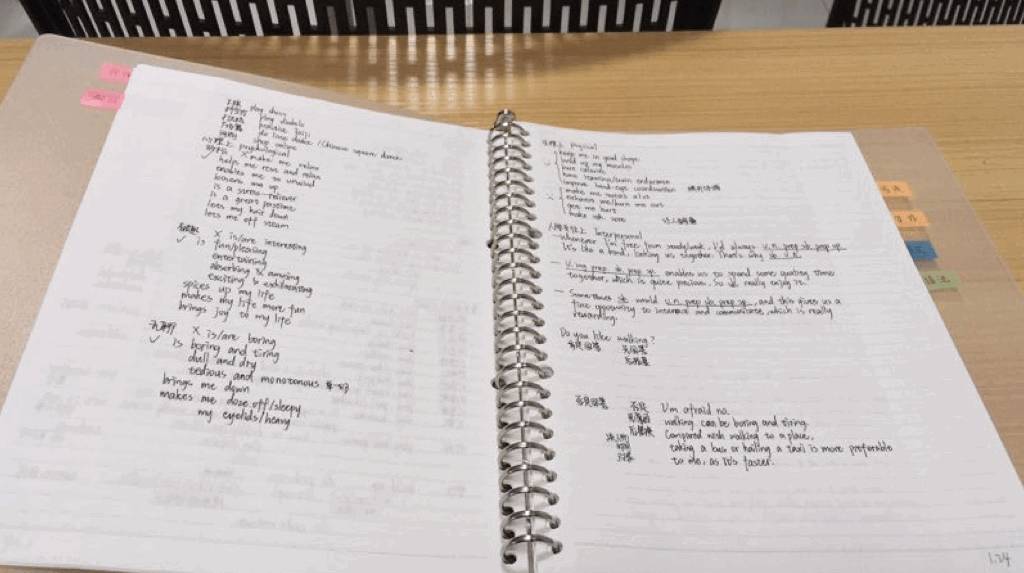 play drums
play doudizhu
practise taiji
do line dance / Chinese square dance
shop online
心理上 psychological
X make me relax
✓ help me rest and relax
enables me to unwind
loosens me up
is a stress-reliever
is a great pastime
lets my hair down
lets me off steam
X is/are interesting
✓ is fun/pleasing
entertaining
absorbing & amusing
exciting & exhilarating
spices up my life
makes my life more fun
brings joy to my life
X is/are boring
✓ is boring and tiring
dull and dry
tedious and monotonous
brings me down
makes me doze off/sleepy
my eyelids/heavy
生理上 physical
keep me in good shape
build up my muscles
burn calories
improve hand-eye coordination
make me sweat a lot
sickness me/burn me out
get me hurt
make sb. sore
人际关系上 Interpersonal
— whenever I'm free from study/work, I'd always v.n. prep sb prep sp.
It's like a bond, linking us together. That's why sb v. n.
— V.ing prep. sb prep sp. enables us to spend some quality time
together, which is quite precious. So sb. really enjoy it.
— Sometimes sb would v.n. prep sb prep sp, and this gives us a
fine opportunity to interact and communicate, which is really
rewarding.
Do you like walking?
否定回答 I'm afraid no.
walking can be boring and tiring.
Compared with walking to a place,
taking a bus or hailing a taxi is more preferable
to me, as it's faster.
1.24